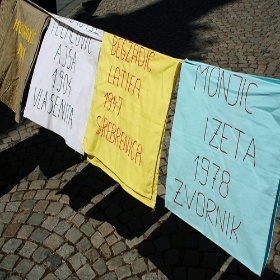 AIŠA
1904
VLASENICA
BEGZADIĆ
LATIFA
1947
SREBRENICA
MUNJIĆ
IZETA
1978
ZVORNIK